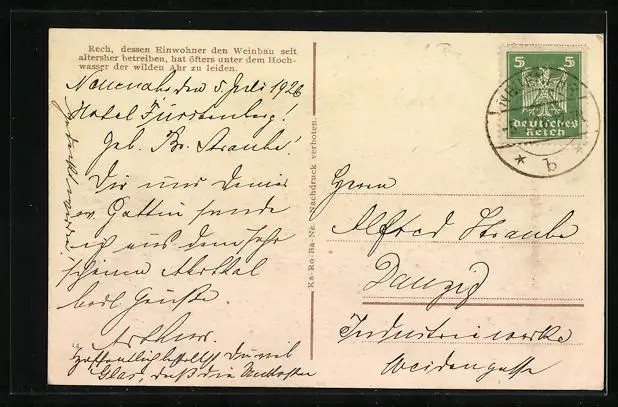 Rech, dessen Einwohner den Weinbau seit
altersher betreiben, hat öfters unter dem Hoch-
wasser der wilden Ahr zu leiden.
Neuenahr den 5. Juli 1926
Hotel Fürstenberg!
Geb. Br. Straube!
Dir und Deiner
Gattin sende
ich aus dem sehr
schönen Ahrthal
herzl. Grüße.
Arthur.
hoffentlich Du mit
Glas, daß die Unkosten
Ka-Ro-Ba-Ne. Nachdruck verboten.
5 5
Deutsches
Reich
* b *
Herrn
Alfred Straube
Danzig
Industriewerke
Weidengasse